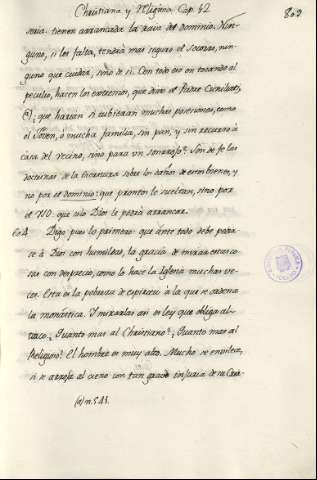 Christiana y Religiosa. Cap. 42
803
seria: tienen arrancada la raiz del dominio. Nin-
guno, si les falta, tendrá mas seguro el socorro, nin-
guno que cuidar, sino de si. Con todo eso en tocando al
peculio, hacen los extremos, que dixo el Padre
(a); que harian si tubieran muchas posesiones, como
el Joven, ó mucha familia, sin pan, y sin recurso à
casa del vecino, sino para un sonrojo? Son de fe las
doctrinas de la Escritura sobre los daños de estos bienes, y
no por el dominio: que pronto le sueltan, sino por
el que solo Dios le podrá arrancar.
604 Digo pues lo primero: que ante todo debe pedir-
se à Dios con humildad, la gracia de mirar estas co-
sas con desprecio, como lo hace la Iglesia muchas ve-
ces. Esta es la pobreza de espiritu à la que se ordena
la monástica. Y mirarlas asi es ley que obliga al
¿Quanto mas al Christiano? ¿Quanto mas al
Religioso? El hombre es muy alto. Mucho se envilece,
si se arroja al cieno con tan grande injuria de su Cria-
(a) n. 541.